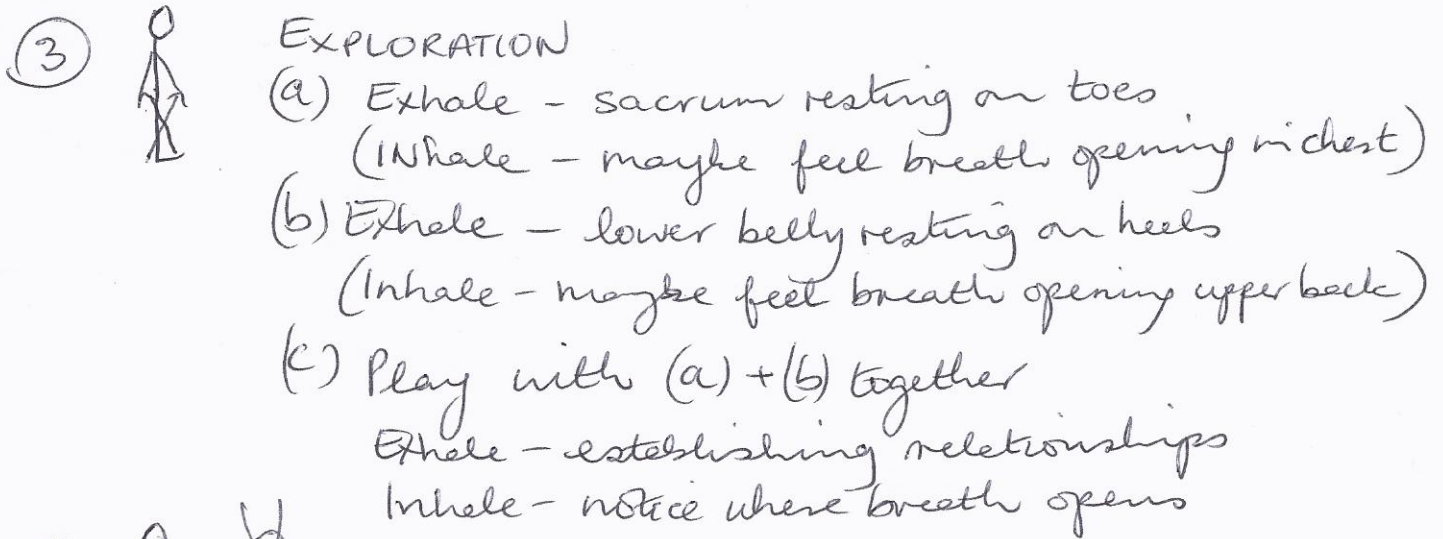 3 EXPLORATION
(a) Exhale - sacrum resting on toes
(INhale - maybe feel breath opening in chest)
(b) Exhale - lower belly resting on heels
(Inhale - maybe feel breath opening upper back)
(c) Play with (a) + (b) together
Exhale - establishing relationships
Inhale - notice where breath opens